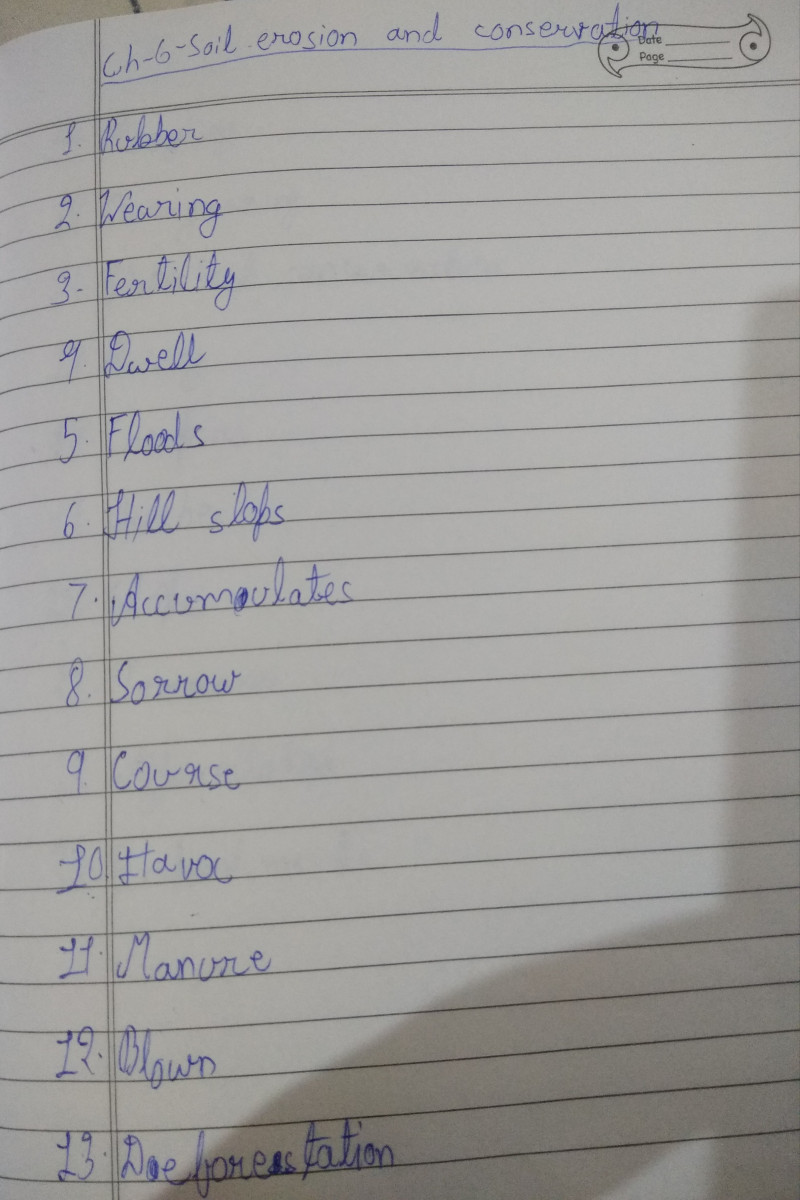 Ch-6-Soil erosion and conservation
Date
Page
1. Rubber
2. Wearing
3. Fertility
4. Dwell
5. Floods
6. Hill slops
7. Accumulates
8. Sorrow
9. Course
10. Havoc
11. Manure
12. Blown
13. Deeforestation